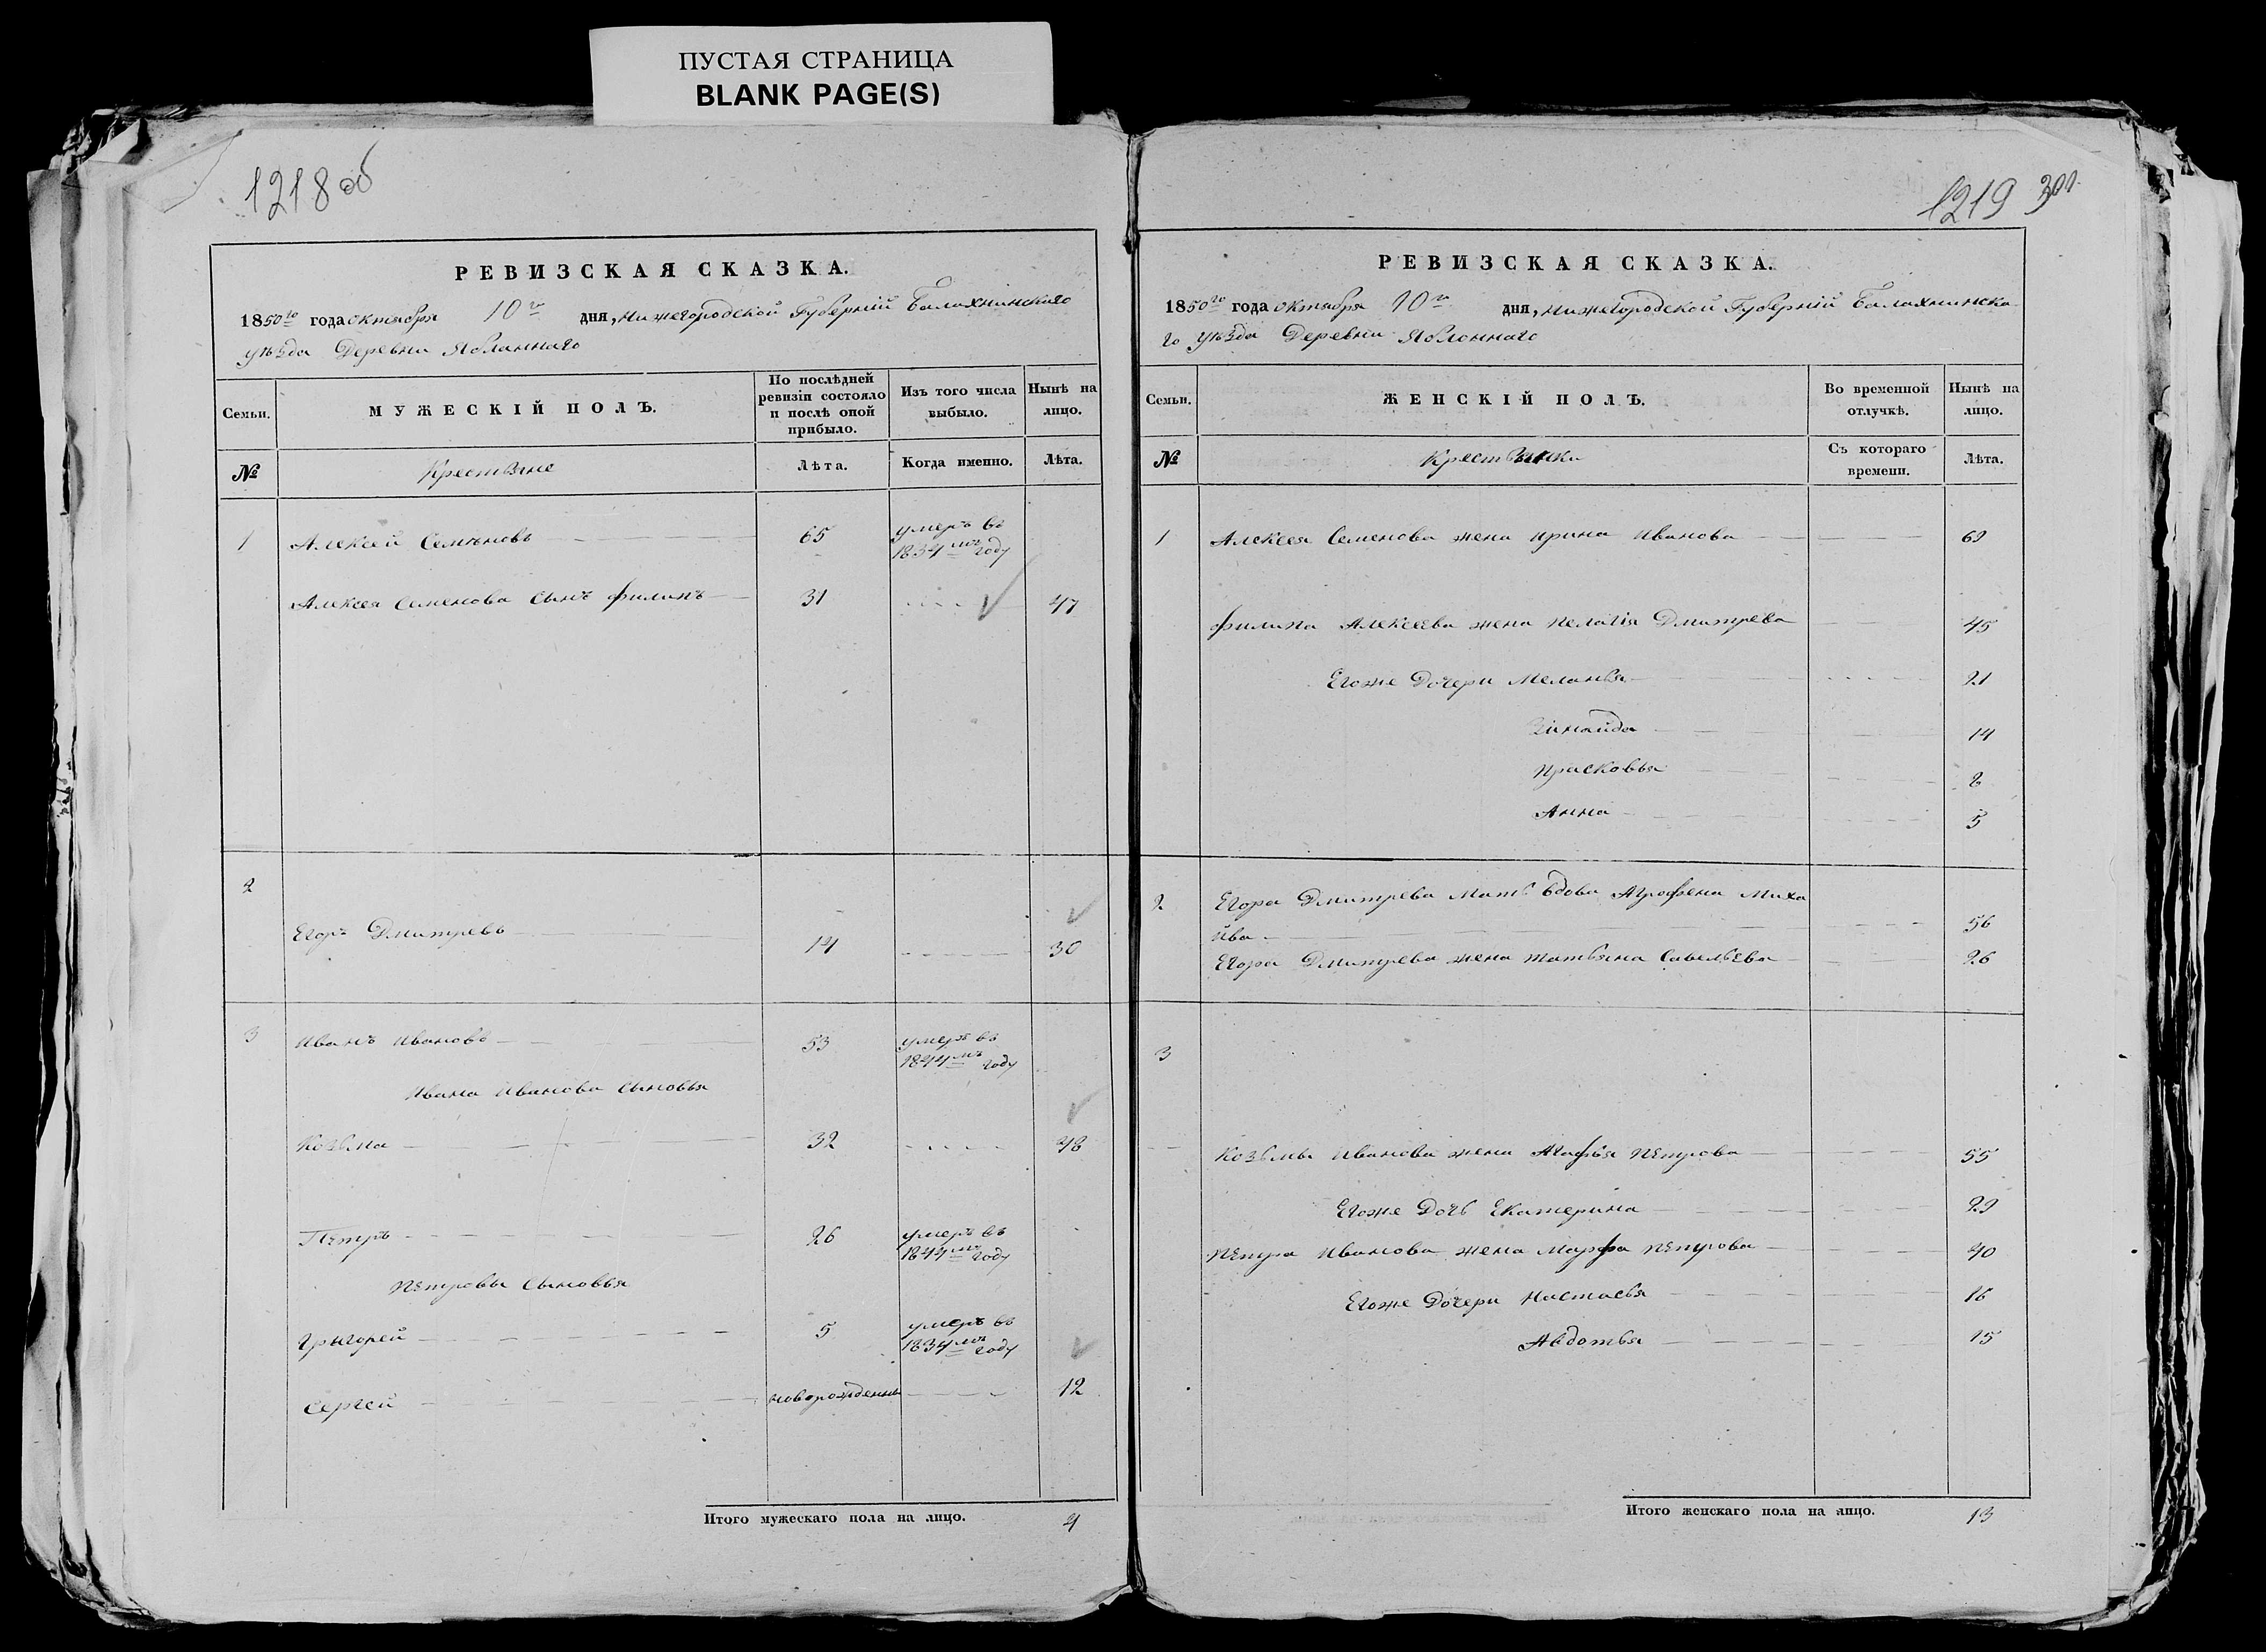 ПУСТАЯ СТРАНИЦА
BLANK PAGE(S)
1218 об
РЕВИЗСКАЯ СКАЗКА.
1850го года октября 10го дня, Нижегородской Губерній Балахнинскаго
уѣзда Деревни Яблоннаго
Семьи.
МУЖЕСКІЙ ПОЛЪ.
По послѣдней
ревизіи состояло
и послѣ оной
прибыло.
Изъ того числа
выбыло.
Нынѣ на
лицо.
№
Крестьяне
Лѣта.
Когда именно.
Лѣта.
1 Алексей Семѣновъ 65 умеръ въ
1834мъ году
Алексея Семенова сынъ Филипъ 31 47
2
Егоръ Дмитревъ 14 30
3 Иванъ Ивановъ 53 умеръ въ
1844мъ году
Ивана Иванова сыновья
Козьма 32 48
Петръ 26 умеръ въ
1844мъ году
Петровы сыновья
Григорей 5 умеръ въ
1834мъ году
Сергей новорожденны 12
Итого мужескаго пола на лицо. 4
1219
РЕВИЗСКАЯ СКАЗКА.
1850го года октября 10го дня, Нижегородской Губерній Балахнинска
го уѣзда Деревни Яблоннаго
Семьи.
ЖЕНСКІЙ ПОЛЪ.
Во временной
отлучкѣ.
Нынѣ на
лицо.
№
Крестьянки
Съ котораго
времени.
Лѣта.
1 Алексея Семенова жена Ирина Иванова 69
Филипа Алексеева жена Пелагія Дмитрева 45
Егоже Дочери Меланья 21
Зинаида 14
Прасковья 8
Анна 5
2 Егора Дмитрева мать вдова Аграфена Миха
йва 56
Егора Дмитрева жена Татьяна Савельева 26
3
Козьмы Иванова жена Агафья Петрова 55
Егоже Дочь Екатерина 29
Петра Иванова жена Марфа Петрова 40
Егоже Дочери Настасья 16
Авдотья 15
Итого женскаго пола на лицо. 13